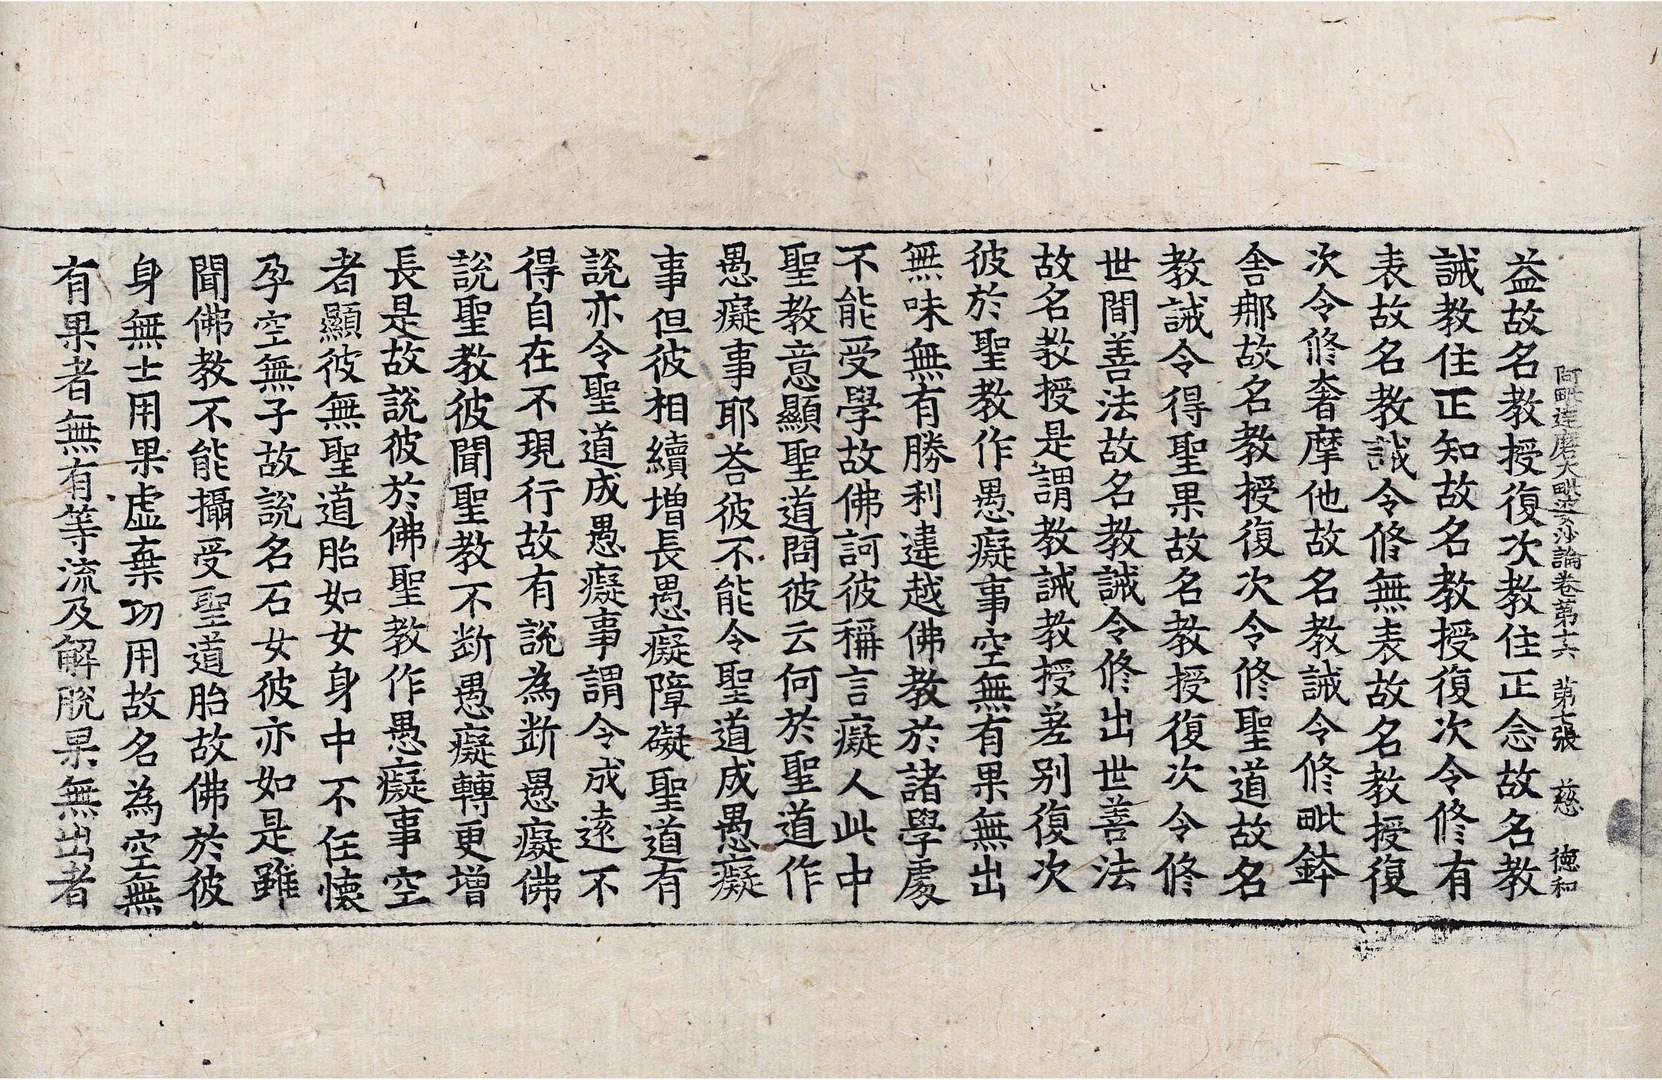 阿毗達磨大毗婆沙論卷第十六 第七張 慈 德和
益故名教授復次教住正念故名教
誡教住正知故名教授復次令修有
表故名教誡令修無表故名教授復
次令修奢摩他故名教誡令修毗鉢
舍那故名教授復次令修聖道故名
教誡令得聖果故名教授復次令修
世間善法故名教誡令修出世善法
故名教授是謂教誡教授差别復次
彼於聖教作愚癡事空無有果無出
無味無有勝利違越佛教於諸學處
不能受學故佛訶彼稱言癡人此中
聖教意顯聖道問彼云何於聖道作
愚癡事耶荅彼不能令聖道成愚癡
事但彼相續增長愚癡障礙聖道有
說亦令聖道成愚癡事謂令成遠不
得自在不現行故有說為断愚癡佛
說聖教彼聞聖教不断愚癡轉更增
長是故說彼於佛聖教作愚癡事空
者顯彼無聖道胎如女身中不任懷
孕空無子故說名石女彼亦如是雖
聞佛教不能攝受聖道胎故佛於彼
身無士用果虛棄功用故名為空無
有果者無有等流及解脫果無出者